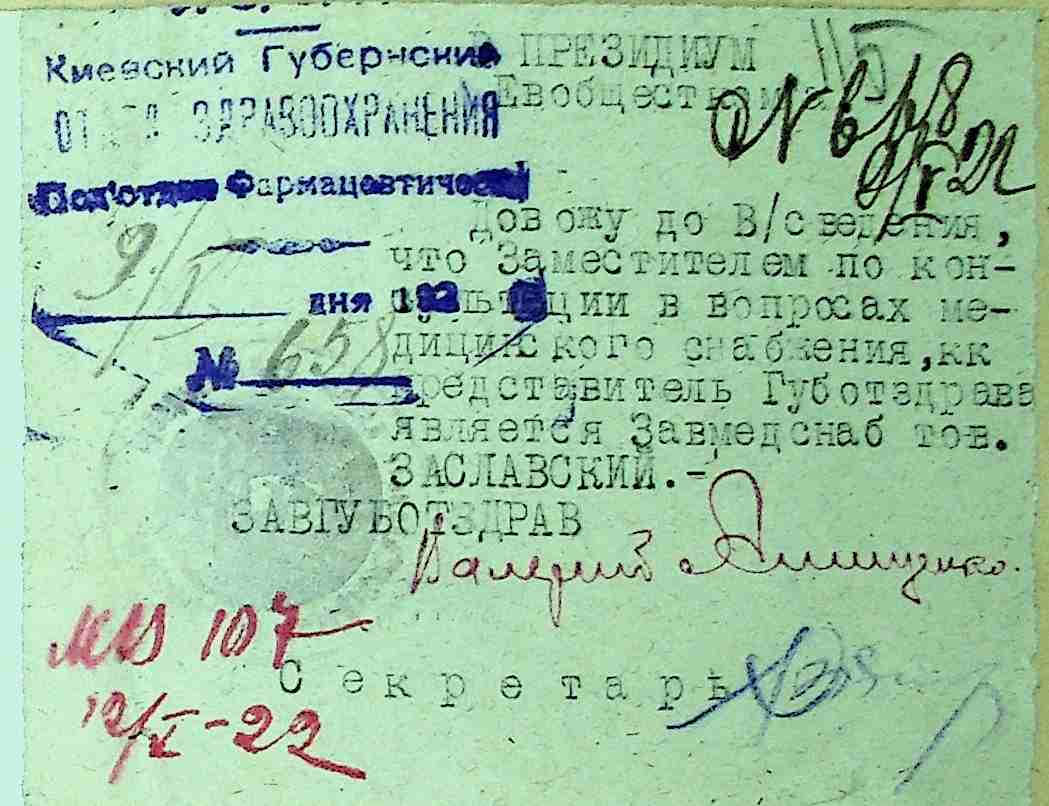 Киевский Губернский
ОТДЕЛ ЗДРАВООХРАНЕНИЯ
Под'отдел Фармацевтическ
9/I
дня 192
№ 658
В ПРЕЗИДИУМ
Евобществкома
115
N 6
22
Довожу до В/сведения,
что Заместителем по кон-
сультации в вопросах ме-
дицинского снабжения,кк
представитель Губотздрава
является Завмедснаб тов.
ЗАСЛАВСКИЙ.-
ЗАВГУБОТЗДРАВ
Валерий
107
12/I-22
Секретарь